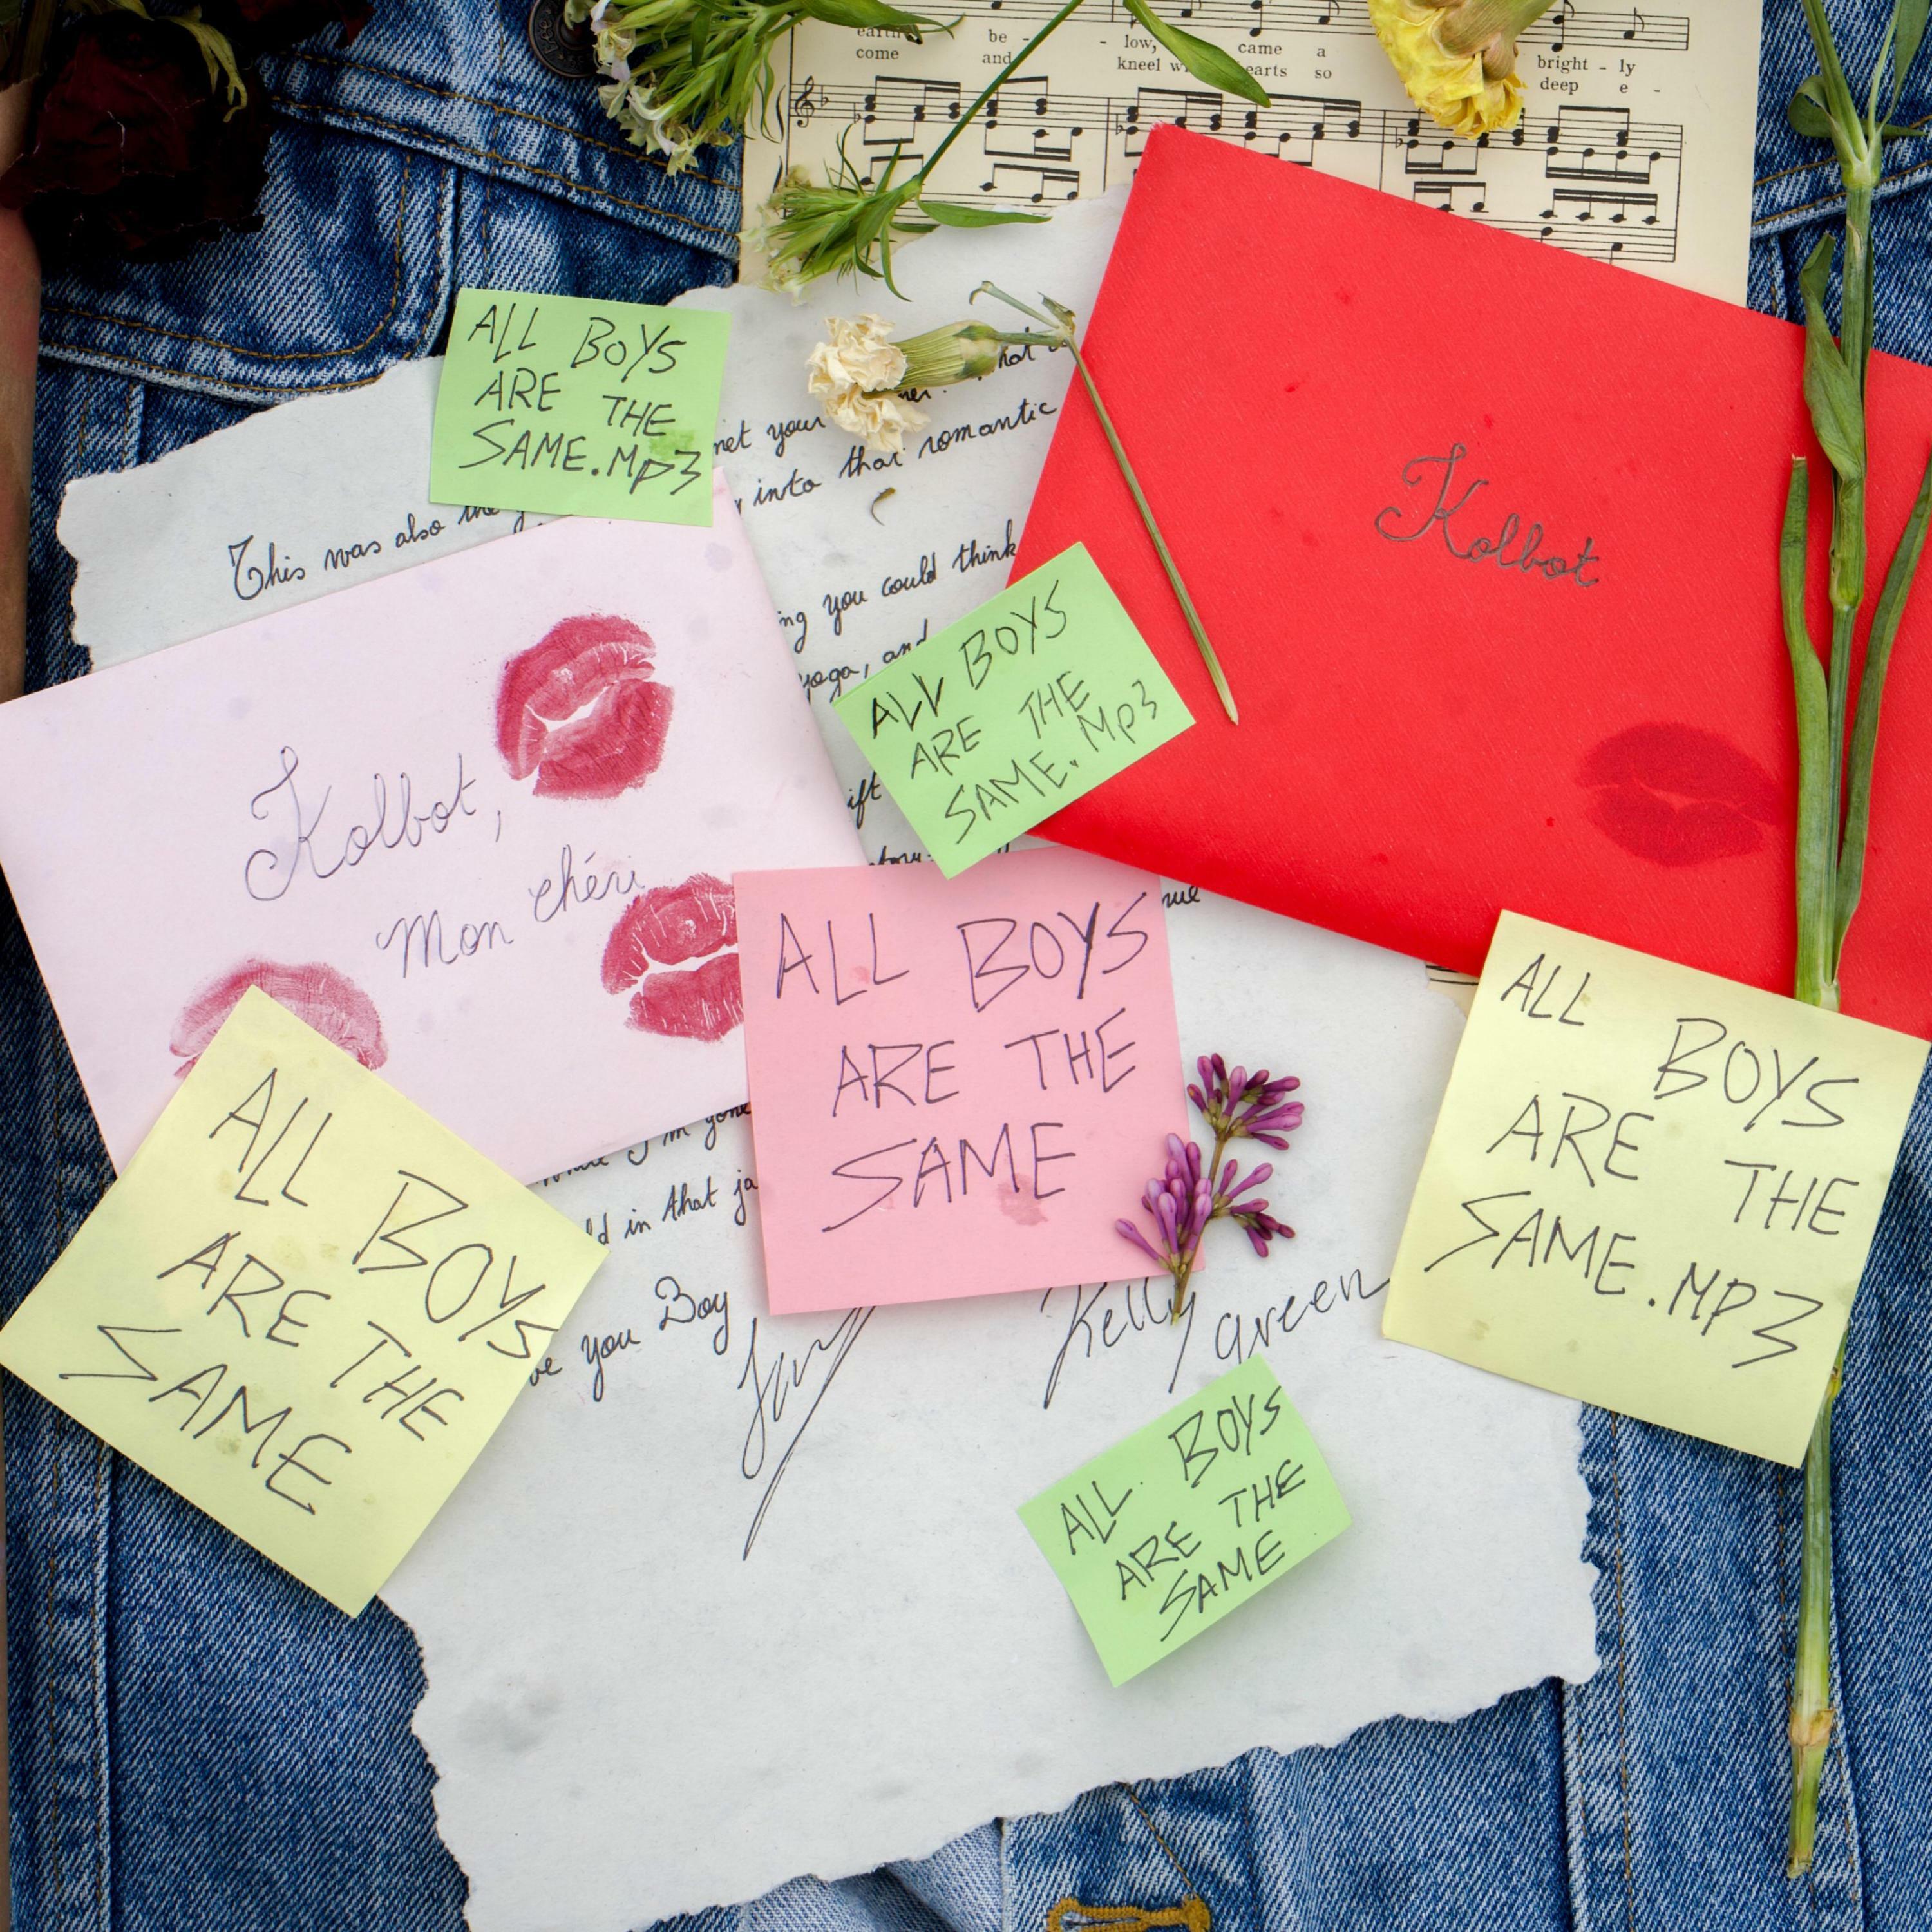 earth be - - low, came a
come and kneel hearts so
bright - ly
deep e -
ALL BOYS
ARE THE
SAME.MP3
This was also the
net your
into that romantic
Kolbot
ng you could think
yoga, and
ALL BOYS
ARE THE
SAME.MP3
ift
Kolbot,
Mon chéri
ALL BOYS
ARE THE
SAME
ALL BOYS
ARE THE
SAME.MP3
ALL BOYS
ARE THE
SAME
I'm gone
ld in that ja
you Boy
Kelly green
ALL BOYS
ARE THE
SAME